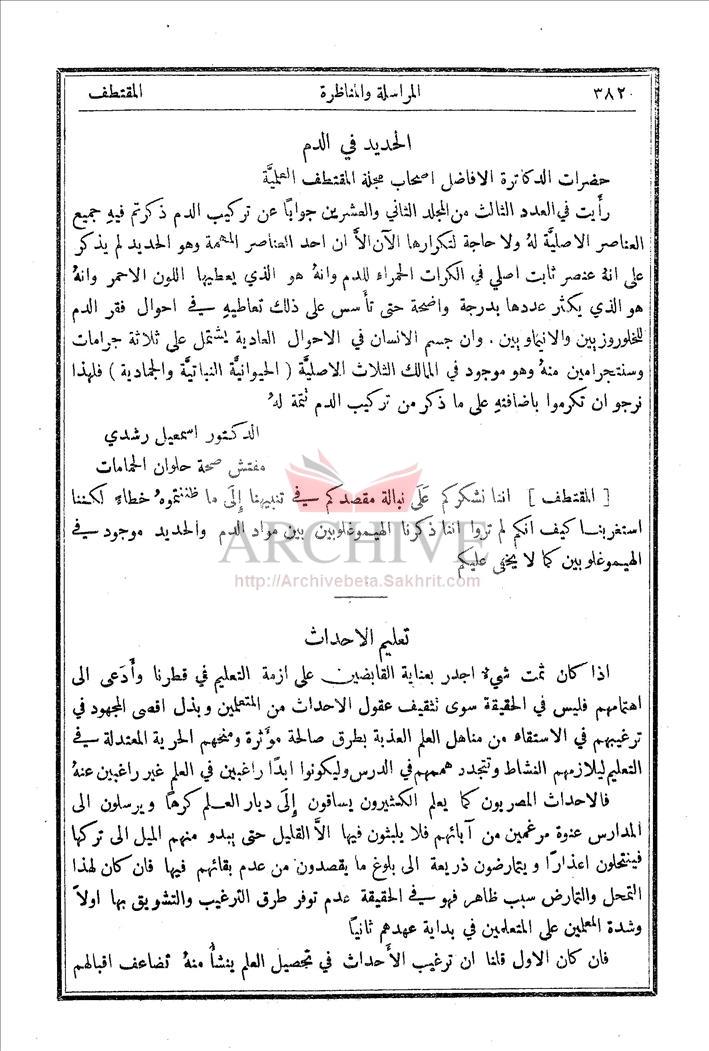 ٣٨٢ المراسلة والمناظرة المقتطف
الحديد في الدم
حضرات الدكاترة الافاضل اصحاب مجلة المقتطف العلميَّة
رأَيت في العدد الثالث من المجلد الثاني والعشرين جوابًا عن تركيب الدم ذكرتم فيهِ جميع
العناصر الاصليَّة لهُ ولا حاجة لتكرارها الآن الاَّ ان احد العناصر المهمة وهو الحديد لم يذكر
على انهُ عنصر ثابت اصلي في الكرات الحمراء للدم وانهُ هو الذي يعطيها اللون الاحمر وانهُ
هو الذي يكثر عددها بدرجة واضحة حتى تأَسس على ذلك تعاطيهِ في احوال فقر الدم
للخلوروزبين والانيماوبين . وان جسم الانسان في الاحوال العادية يشتمل على ثلاثة جرامات
وسنتجرامين منهُ وهو موجود في الممالك الثلاث الاصليَّة ( الحيوانيَّة النباتيَّة والجمادية ) فلهذا
نرجو ان تكرموا باضافتهِ على ما ذكر من تركيب الدم تتمة لهُ
الدكتور اسمعيل رشدي
مفتش صحة حلوان الحمامات
[ المقتطف ] اننا نشكركم عَلَى نبالة مقصدكم في تنبيهنا إِلَى ما ظننتموهُ خطاءً لكننا
استغربنا كيف انكم لم تروا اننا ذكرنا الهيموغلوبين بين مواد الدم والحديد موجود في
الهيموغلوبين كما لا يخفى عليكم
ARCHIVE
http://Archivebeta.Sakhrit.com
تعليم الاحداث
اذا كان ثمت شيءٌ اجدر بعناية القابضين على ازمة التعليم في قطرنا وأَدعى الى
اهتمامهم فليس في الحقيقة سوى تثقيف عقول الاحداث من المتعلمين وبذل اقصى المجهود في
ترغيبهم في الاستقاء من مناهل العلم العذبة بطرق صالحة موَّثرة ومنحهم الحرية المعتدلة في
التعليم ليلازمهم النشاط وتتجدد هممهم في الدرس وليكونوا ابدًا راغبين في العلم غير راغبين عنهُ
فالاحداث المصريون كما يعلم الكثيرون يساقون إِلَى ديار العلم كرهًا ويرسلون الى
المدارس عنوة مرغمين من آبائهم فلا يلبثون فيها الاَّ القليل حتى يبدو منهم الميل الى تركها
فينتحلون اعذارًا ويتمارضون ذريعة الى بلوغ ما يقصدون من عدم بقائهم فيها فان كان لهذا
التمحل والتمارض سبب ظاهر فهو في الحقيقة عدم توفر طرق الترغيب والتشويق بها اولاً
وشدة المعلمين على المتعلمين في بداية عهدهم ثانيًا
فان كان الاول قلنا ان ترغيب الأَحداث في تحصيل العلم ينشأُ منهُ تضاعف اقبالهم